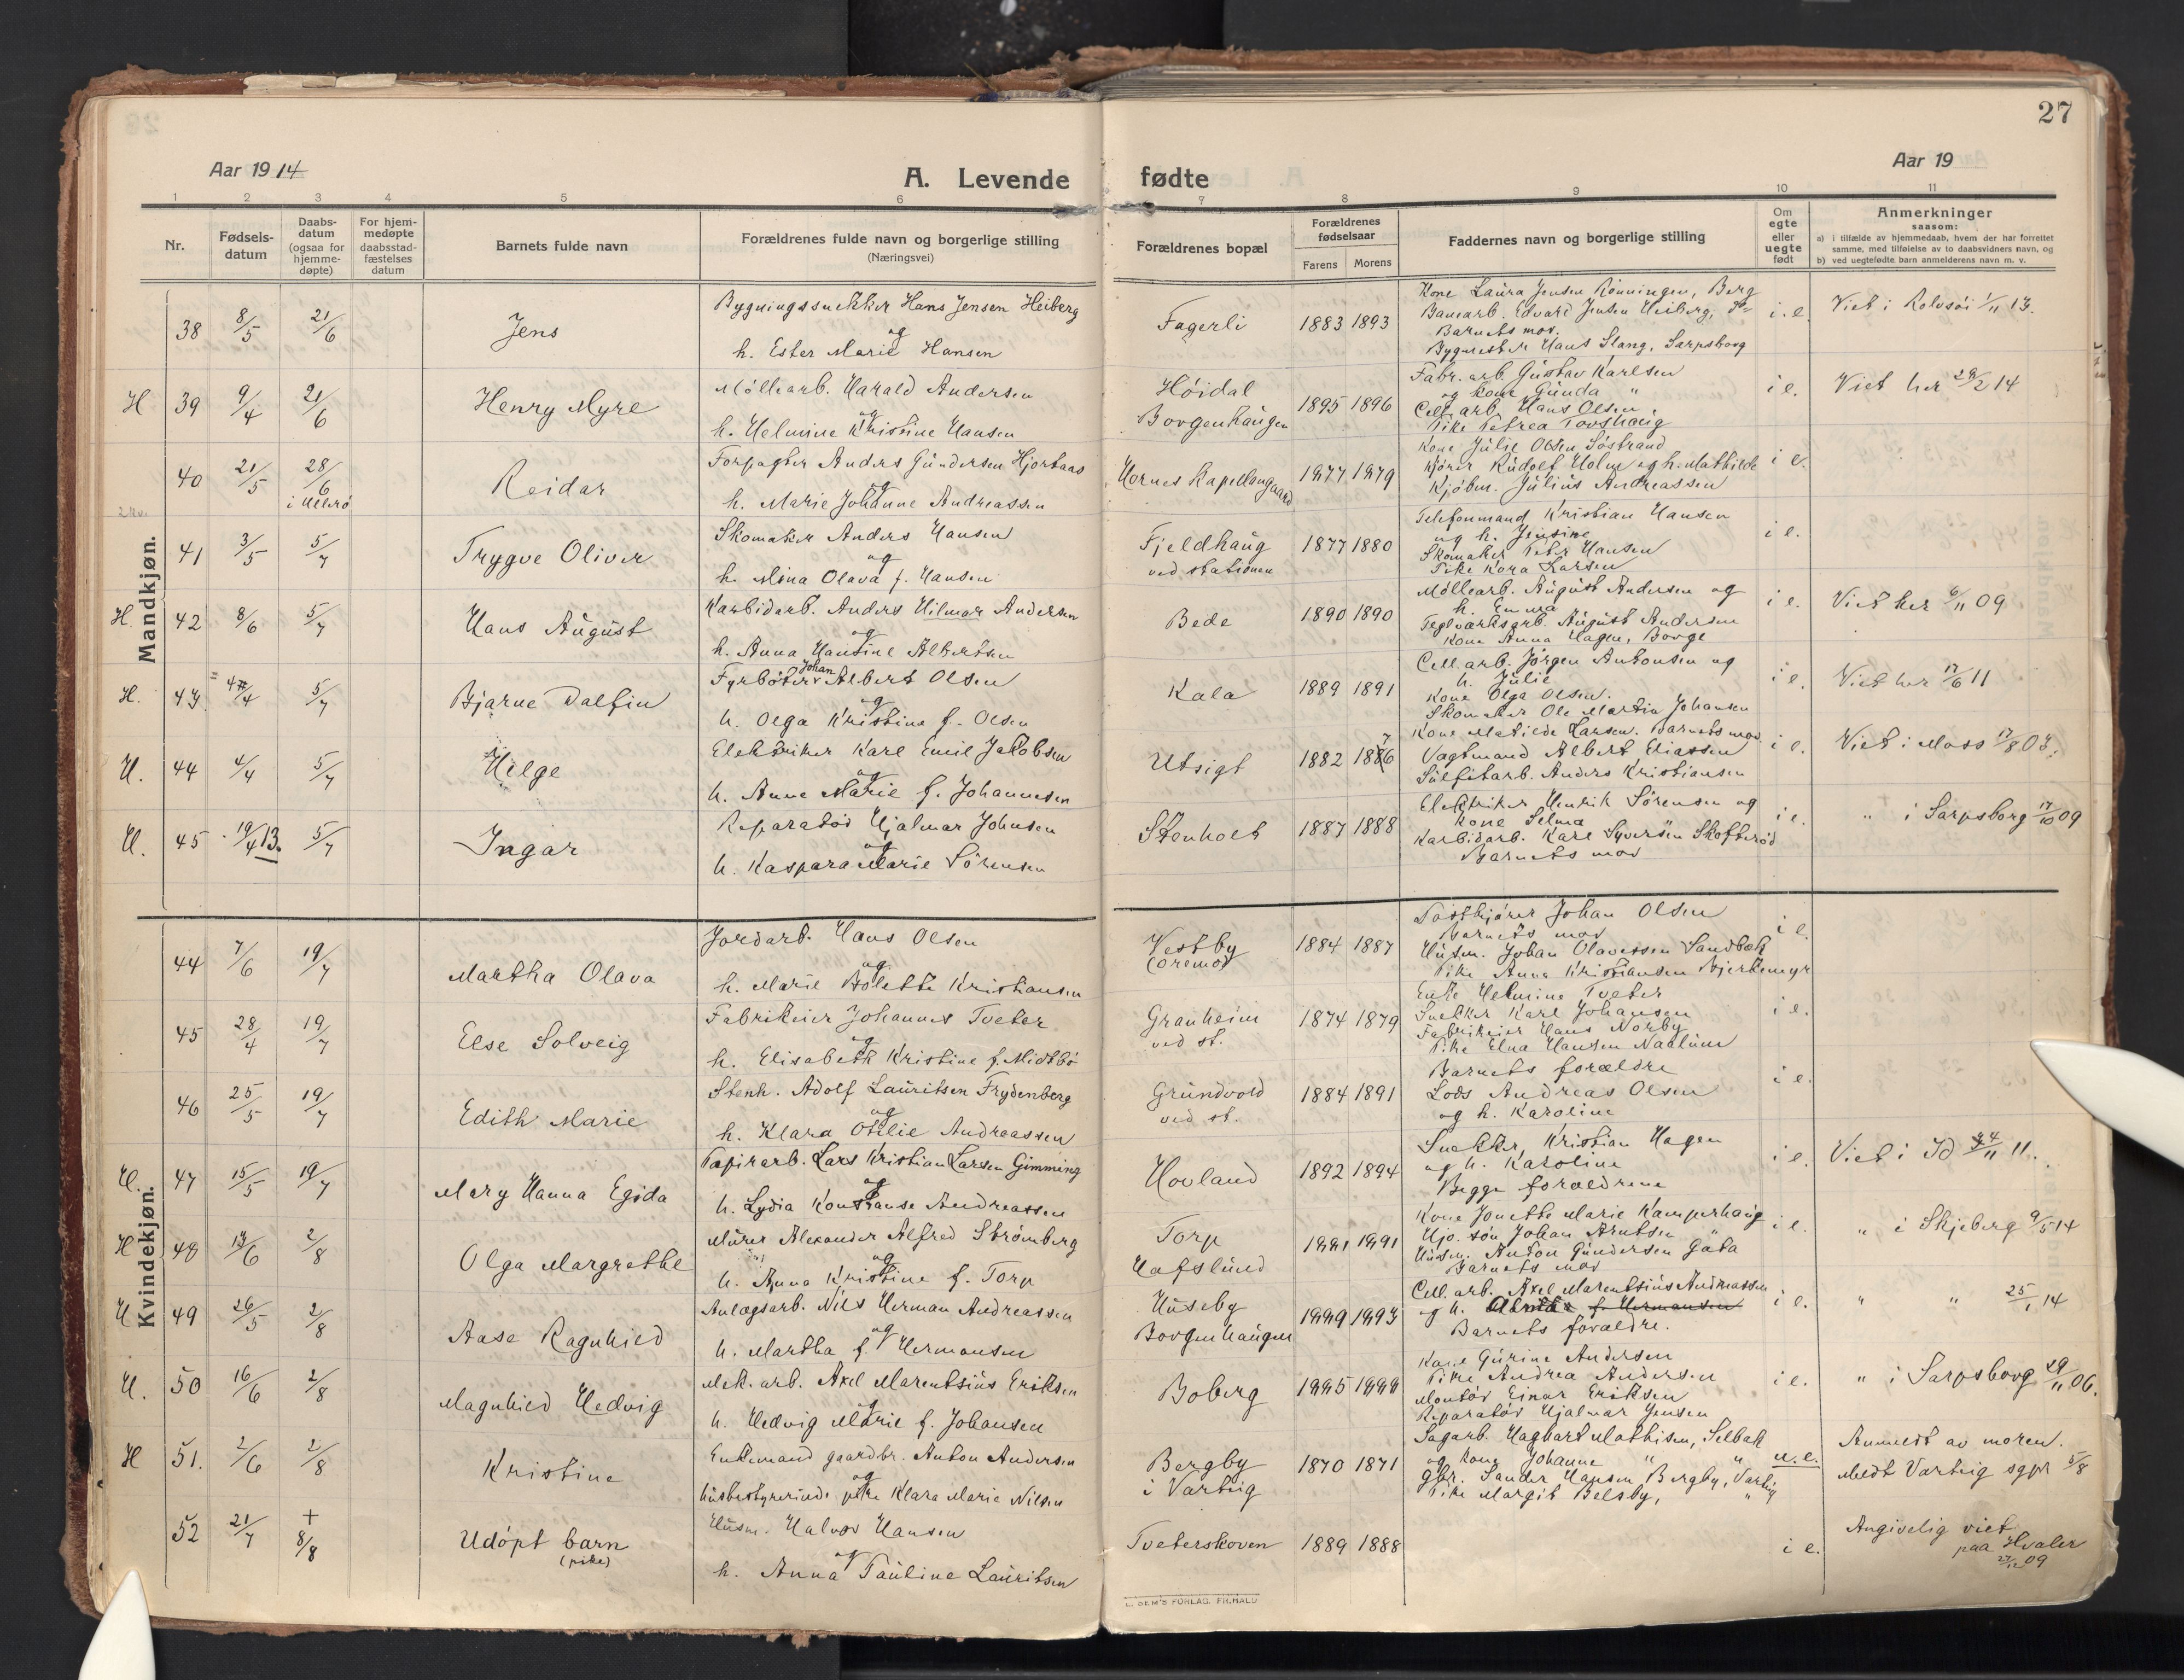 27
Aar 1914
A. Levende
fødte
Aar 19
1 2 3 4 5 6 7 8 9 10 11
Nr.
Fødsels-
datum
Daabs-
datum
(ogsaa for
hjemme-
døpte)
For hjem-
medøpte
daabsstad-
fæstelses
datum
Barnets fulde navn
Forældrenes fulde navn og borgerlige stilling
(Næringsvei)
Forældrenes bopæl
Forældrenes
fødselsaar
Farens Morens
Faddernes navn og borgerlige stilling
Om
egte
eller
uegte
født
Anmerkninger
saasom:
a) i tilfælde av hjemmedaab, hvem der har forrettet
samme, med tilføielse av to daabsvidners navn, og
b) ved uegtefødte barn anmelderens navn m. v.
Mandkjøn.
38 8/5 21/6 Jens
Bygningssnekker Hans Jensen Heiberg
og
h. Ester Marie Hansen
Fagerli 1883 1893
Kone Laura Jensen Rönningen, Berg
Banearb. Edvard Jensen Heiberg,
Barnets mor.
Bygmester Hans Slang, Sarpsborg
i. e. Viet i Rolvsöi 1/11 13.
H 39 9/4 21/6 Henry Myre
Møllearb. Harald Andersen
og
h. Helmine Kristine Hansen
Høidal
Borgenhaugen
1895 1896
Fabr. arb. Gustav Karlsen
og kone Gunda "
Cell. arb. Hans Olsen.
Pike Petrea Torshaug
i e. Viet her 28/2 14
40 21/5 28/6 i
Reidar
Forpagter Anders Gundersen Hjortaas
og
h. Marie Johanne Andreassen
Hornes Kapellangaard 1877 1879
Kone Julie Olsen, Söstrand
Kjører Rudolf Holm og h. Mathilde
Kjöbm. Julius Andreassen
i e.
41 3/5 5/7 Trygve Oliver
Skomaker Anders Hansen
og
h. Mina Olava f. Hansen
Fjeldhaug
ved stationen
1877 1880
Telefonmand Kristian Hansen
og h. Jensine
Skomaker Peter Hansen
Pike Kora Larsen
i e.
H. 42 8/6 5/7 Hans August
Karbidarb. Anders Hilmar Andersen
og
h. Anna Hantine Albertsen
Bede 1890 1890
Møllearb. August Andersen og
h. Emma
Teglverksarb. August Andersen
Kone Anna Hagen, Borge
i e. Viet her 6/11 09
H. 43 5/7 Bjarne Dalfin
Fyrbøter Johan Albert Olsen
og
h. Olga Kristine f. Olsen
Kala 1889 1891
Cell. arb. Jörgen Antonsen og
h. Julie
Kone Olga Olsen.
Skomaker Ole Martin Johansen
i e. Viet her 17/6 11
H. 44 4/4 5/7 Helge
Elektriker Karl Emil Jakobsen
og
h. Anne Marie f. Johannesen
Utsigt 1882
Kone Matilde Larsen. Barnets mor.
Vagtmand Albert Eliassen
Sulfitarb. Anders Kristiansen
i e. Viet i Moss 17/8 03.
H. 45 19/4 13. 5/7 Ingar
Reparatör Hjalmar Johnsen
og
h. Kaspara Marie Sörensen
Stenholt 1887 1888
Elektriker Henrik Sörensen og
kone Selma
Karbidarb. Karl Syversen Skofteröd
Barnets mor
i e. " i Sarpsborg 17/10 09
Kvindekjøn.
44 7/6 19/7 Martha Olava
Jordarb. Hans Olsen
og
h. Marie Bolette Kristiansen
Vestby
(Oremo)
1884 1887
Postkjører Johan Olsen
Barnets mor
Husm. Johan Olavessen Sandbæk
Pike Anna Kristiansen Bjerkemyr
i e.
45 28/4 19/7 Else Solveig
Fabrikeier Johannes Tveter
og
h. Elisabeth Kristine f. Midtbö
Granheim
ved st.
1874 1879
Enke Helmine Tveter
Snekker Karl Johansen
Fabrikeier Hans Norby
Pike Elna Hansen Naalum
i e.
46 25/5 19/7 Edith Marie
Stenh. Adolf Lauritsen Frydenberg
og
h. Klara Otilie Andreassen
Grundvold
ved st.
1884 1891
Barnets forældre
Lods Andreas Olsen
og h. Karoline
i e.
H. 47 15/5 19/7 Mary Hanna Egida
Papirarb. Lars Kristian Larsen Gimming
og
h. Lydia Konstanse Andreassen
Hovland 1892 1894
Snekker Kristian Hagen
og h. Karoline
Begge forældrene
i e. Viet i Id 11.
H 48 2/8 Olga Margrethe
Murer Alexander Alfred Strömberg
og
h. Anna Kristine f. Torp
Torp
Hafslund
1881 1891
Kone Jonette Marie Kamperhaug
Hjo. sön Johan Arntsen "
Husm. Anton Gundersen Gata
Barnets mor
i e. " i Skjeberg 9/5 14
H 49 26/5 2/8 Aase Ragnhild
Anlægsarb. Nils Herman Andreassen
og
h. Martha f. Hermansen
Huseby
Borgenhaugen
1889 1893
Cell. arb. Axel Marentsius Andreassen
og h. f. Hermansen
Barnets forældre.
i e. " " 25/1 14
H. 50 16/6 2/8 Magnhild Hedvig
Mek. arb. Axel Marentsius Eriksen
og
h. Hedvig Marie f. Johansen
Boberg 1885 1888
Kone Gurine Andersen
Pike Andrea Andersen
Montör Einar Eriksen
Reparatör Hjalmar Jensen
i e. " i Sarpsborg 29/11 06.
H 51. 2/6 2/8 Kristine
Enkemand gaardbr. Anton Andersen
og
husbestyrerinde pike Klara Marie Nilsen
Bergby
i Varteig
1870 1871
Sagarb. Hagbart Mathisen, Selbak
og kone Johanne " "
Gbr. Sander Hansen, Bergby, Varteig
Pike Margit Belsby, "
u. e. Anmeldt av moren.
Meldt Varteig sgpr 5/8
52 21/7 + 8/8 Udöpt barn
(pike)
Husm. Halvor Hansen
og
h. Anna Pauline Lauritsen
Tveterskoven 1889 1888
i e. Angivelig viet
paa Hvaler
27/12 09
E. SEM'S FORLAG, FR.HALD